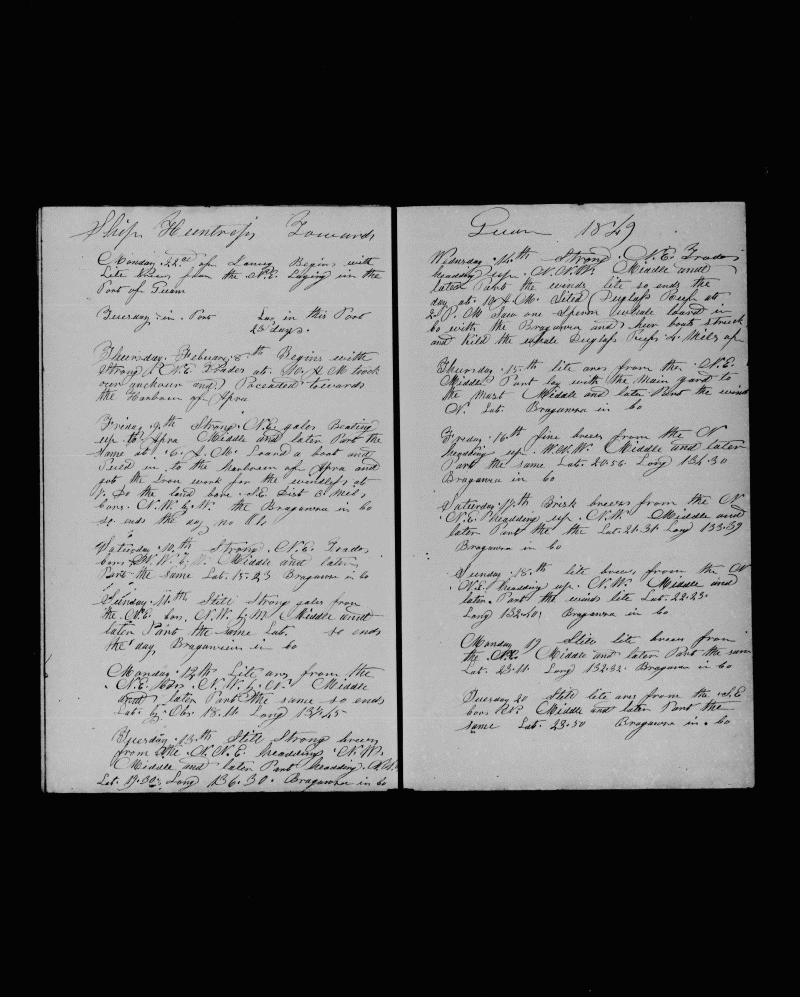 Ship Huntress Towards
Monday 22nd of Janury Begins with
Lite breeses from the N.E. Laying in the
Port of Guam
Tuesday in Port Lay in this Port
23 days.
Thursday Febuary 8th Begins withe
Strong N.E. Trades at 10 A M took
our anchour and Proceaded towards
the Harbour of Apra
Friday 9th Strong N.E. gales Beating
up to Apra Middle and later Part the
Same at 6 A.M. Loard a boat and
in to the Harbour of Apra and
got the Iron work for the windlass at
the land bore S.E. Dist 8 Mils
bore N.W. by W. the Braganza in Co
so ends the day no
Saturday 10th Strong N.E. Trades
bore N.W. by W. Middle and later
Part the same Lat. 15.23 Braganza in Co
Sunday 11th Still Strong gales from
the N.E. bor. N.W. by W. Middle and
later Part the Same Lat. so ends
the day Braganza in Co
Monday 12th Lite ars from the
N.E. Hdn N.W. by N. Middle
and later Part the same so ends
Lat. by Obs 18.11 Long 137.45
Tuesday 13th Still Strong breeses
from the N.N.E. headding N.W.
Middle and later Part headding
Lat. 19.30 Long 136.30. Braganza in Co
Guam 1849
Wedersday 14th Strong N.E. Trades
headding up N.N.W. Middle and
later Part the winds lite so ends the
day at 10 A.M. Sited Duglass Reef at
2 P.M Saw one Sperm whale loared in
Co with the Braganza and her boats struck
and kild the whale Duglass Reefs 4 Mils of
Thursday 15th lite ars from the N.E.
Middle Part lay with the main yard to
the mast Middle and later Part the winds
N. Lat. Braganza in Co
Friday 16th fine breses from the N
headding up W.N.W. Middle and later
Part the same Lat. 20.56 Long 134.30
Braganza in Co
Saterday 17th Brisk breeses from the N
N.E. headding up N.W. Middle and
later Part the the Lat. 21.31 Long 133.59
Braganza in Co
Sunday 18th lite breeses from the N
N.E. headding up. N.W. Middle and
later Part the winds lite Lat. 22.23
Long 132.40 Braganza in Co
Monday 19 Still lite breses from
the N.E. Middle and later Part the same
Lat. 23.11 Long 132.32 Braganza in Co
Tuesday 20 Still lite ars from the S.E
bors Middle and later Part the
same Lat. 23.50 Braganza in Co